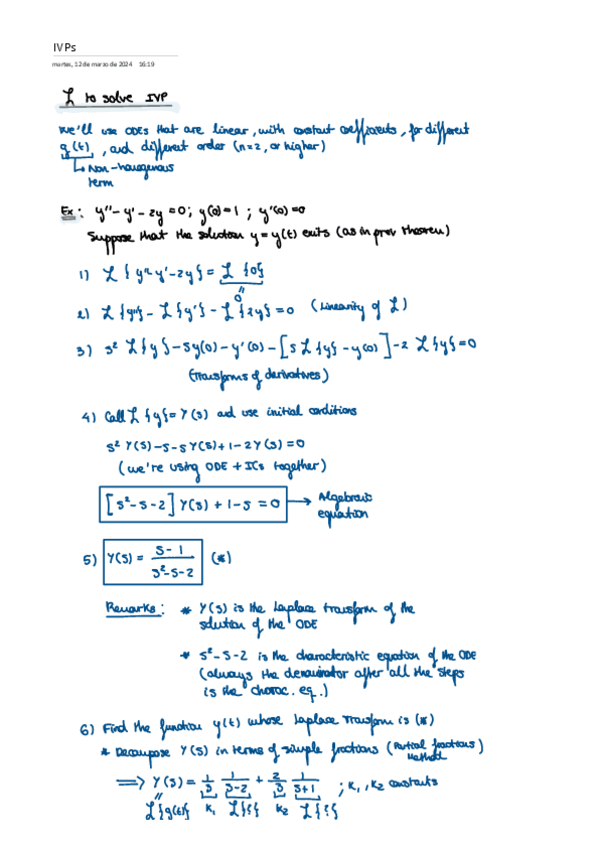 IVPs
martes, 12 de marzo de 2024 16:19
L to solve IVP
We'll use ODEs that are linear, with constant coefficients, for different
g(t), and different order (n=2, or higher)
Non-homogenous
term
Ex: y''-y'-2y=0; y(0)=1 ; y'(0)=0
Suppose that the solution y=y(t) exits (as in prev theorem)
1) L{y''-y'-2y} = L{0}
"
0
2) L{y''} - L{y'} - L{2y} = 0 (Linearity of L)
3) s² L{y} - sy(0) - y'(0) - [s L{y} - y(0)] - 2 L{y} = 0
(Transforms of derivatives)
4) Call L{y} = Y(s) and use initial conditions
s² Y(s) - s - s Y(s) + 1 - 2Y(s) = 0
(we're using ODE + ICs together)
[s²-s-2] Y(s) + 1 - s = 0 → Algebraic
equation
5) Y(s) = (s-1)/(s²-s-2) (*)
Remarks: * Y(s) is the Laplace transform of the
solution of the ODE
* s²-s-2 is the characteristic equation of the ODE
(always the denominator after all the steps
is the charac. eq.)
6) Find the function y(t) whose Laplace Transform is (*)
* Decompose Y(s) in terms of simple fractions (Partial fractions
Method)
⟹ Y(s) = 1/3 1/(s-2) + 2/3 1/(s+1) ; K₁, K₂ constants
" L{y(t)} K₁ L{?} K₂ L{?}